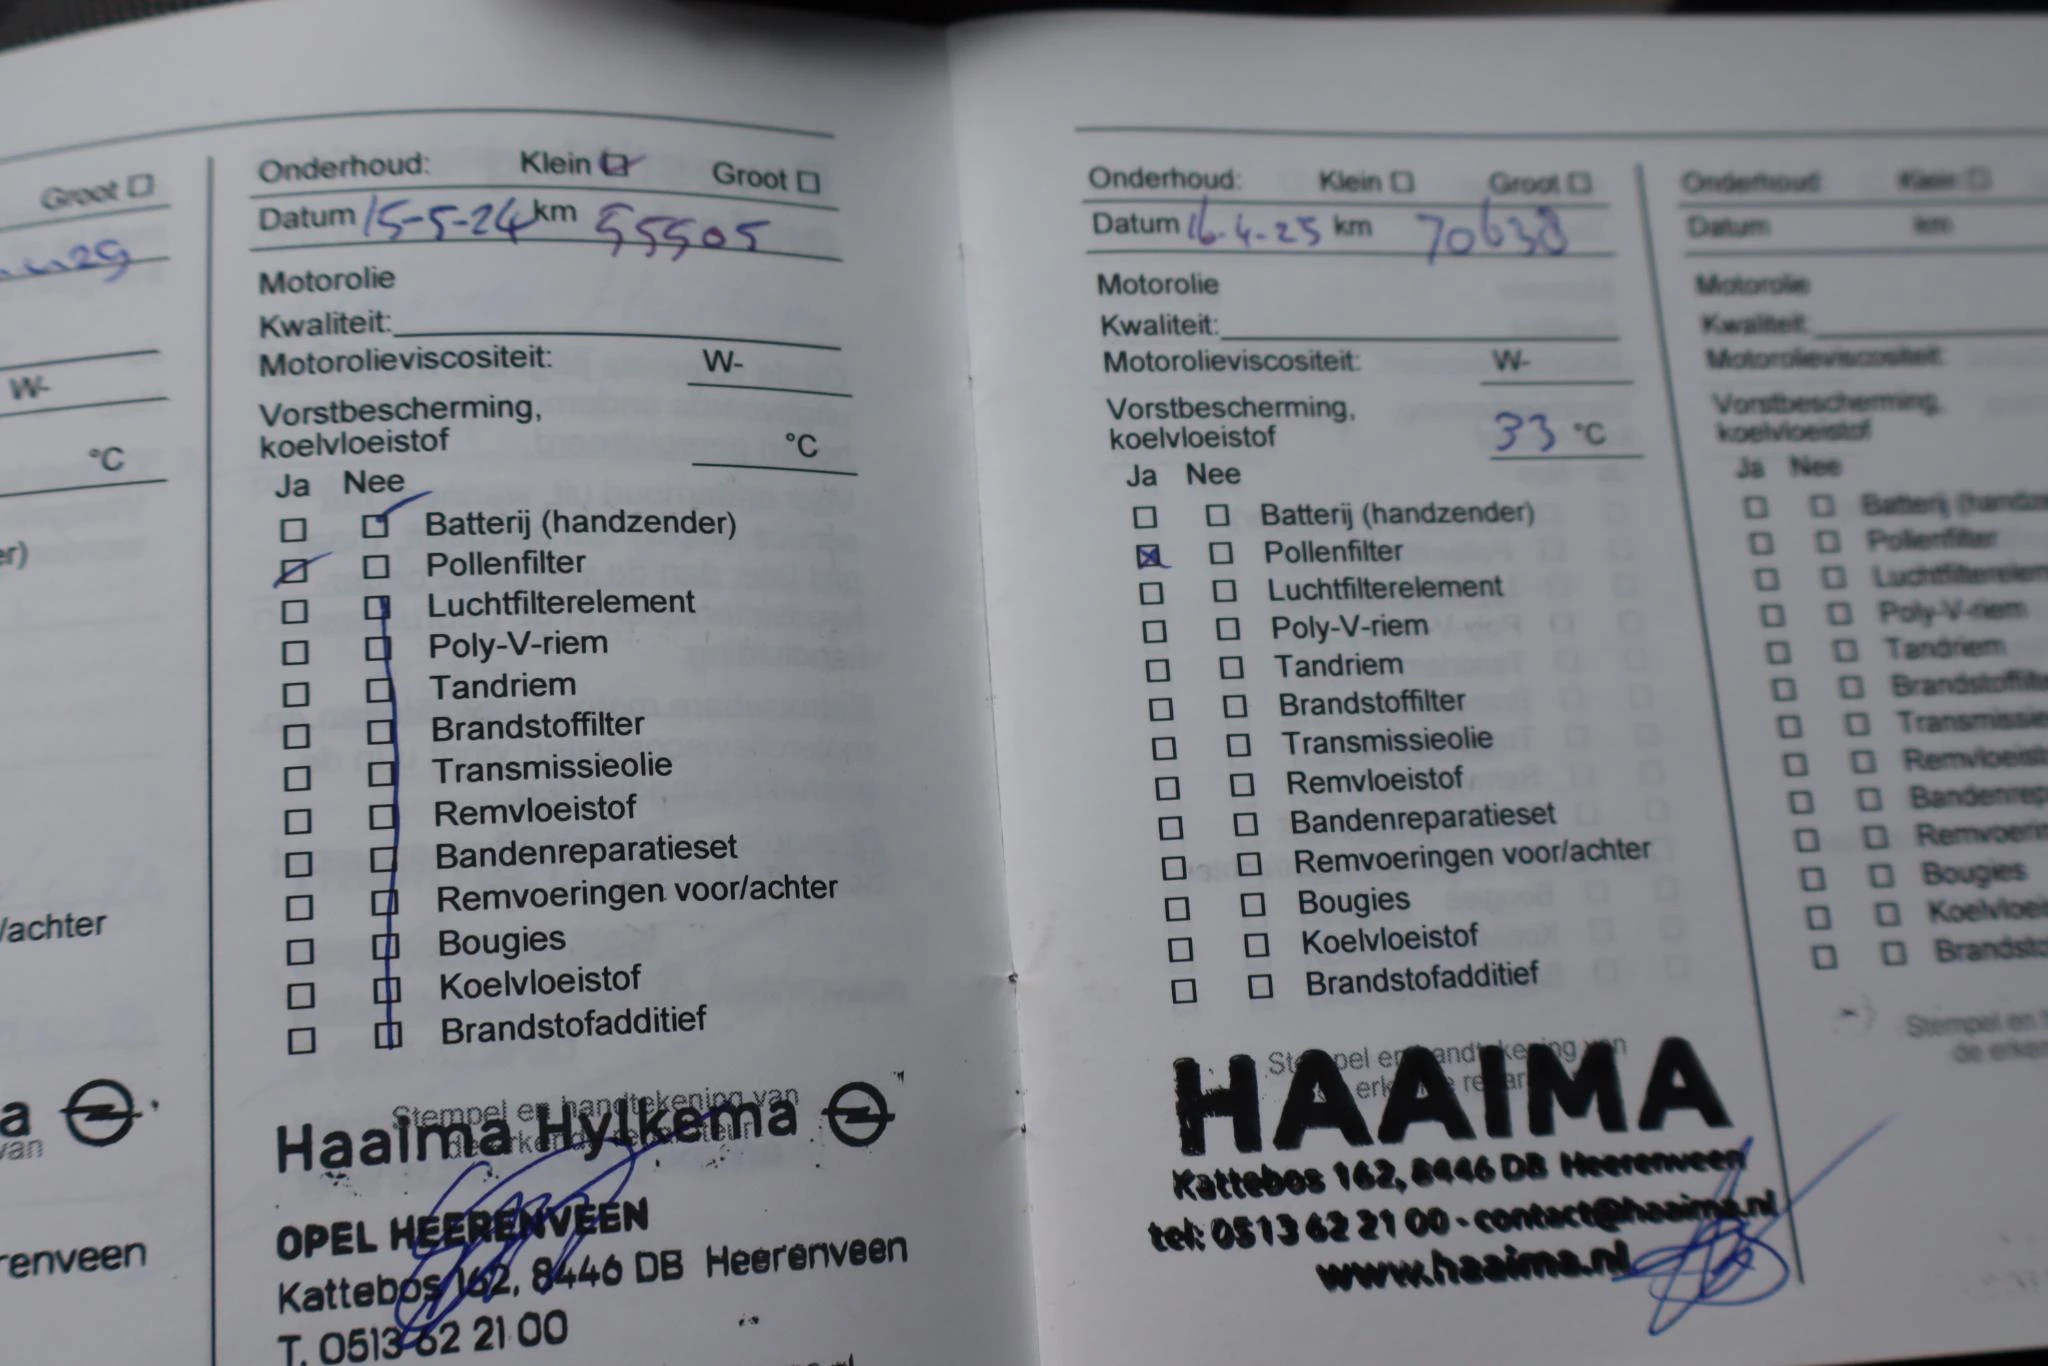 Groot
29
W-
°C
er)
/achter
a
van
renveen
Onderhoud: Klein Groot
Datum 15-5-24 km 55505
Motorolie
Kwaliteit:
Motorolieviscositeit: W-
Vorstbescherming,
koelvloeistof °C
Ja Nee
Batterij (handzender)
Pollenfilter
Luchtfilterelement
Poly-V-riem
Tandriem
Brandstoffilter
Transmissieolie
Remvloeistof
Bandenreparatieset
Remvoeringen voor/achter
Bougies
Koelvloeistof
Brandstofadditief
Stempel en handtekening van
de erkende reparateur
Haaima Hylkema
OPEL HEERENVEEN
Kattebos 162, 8446 DB Heerenveen
T. 0513 62 21 00
Onderhoud: Klein Groot
Datum 16-4-25 km 70638
Motorolie
Kwaliteit:
Motorolieviscositeit: W-
Vorstbescherming,
koelvloeistof 33 °C
Ja Nee
Batterij (handzender)
Pollenfilter
Luchtfilterelement
Poly-V-riem
Tandriem
Brandstoffilter
Transmissieolie
Remvloeistof
Bandenreparatieset
Remvoeringen voor/achter
Bougies
Koelvloeistof
Brandstofadditief
Stempel en handtekening van
HAAIMA
Kattebos 162, 8446 DB Heerenveen
tel: 0513 62 21 00 - contact@haaima.nl
www.haaima.nl
Onderhoud: Klein
Datum km
Motorolie
Kwaliteit:
Motorolieviscositeit:
Vorstbescherming,
koelvloeistof
Ja Nee
Batterij (handze
Pollenfilter
Luchtfilterelem
Poly-V-riem
Tandriem
Brandstoffilte
Transmissie
Remvloeist
Bandenrep
Remvoerin
Bougies
Koelvloei
Brandsto
Stempel en
de erken